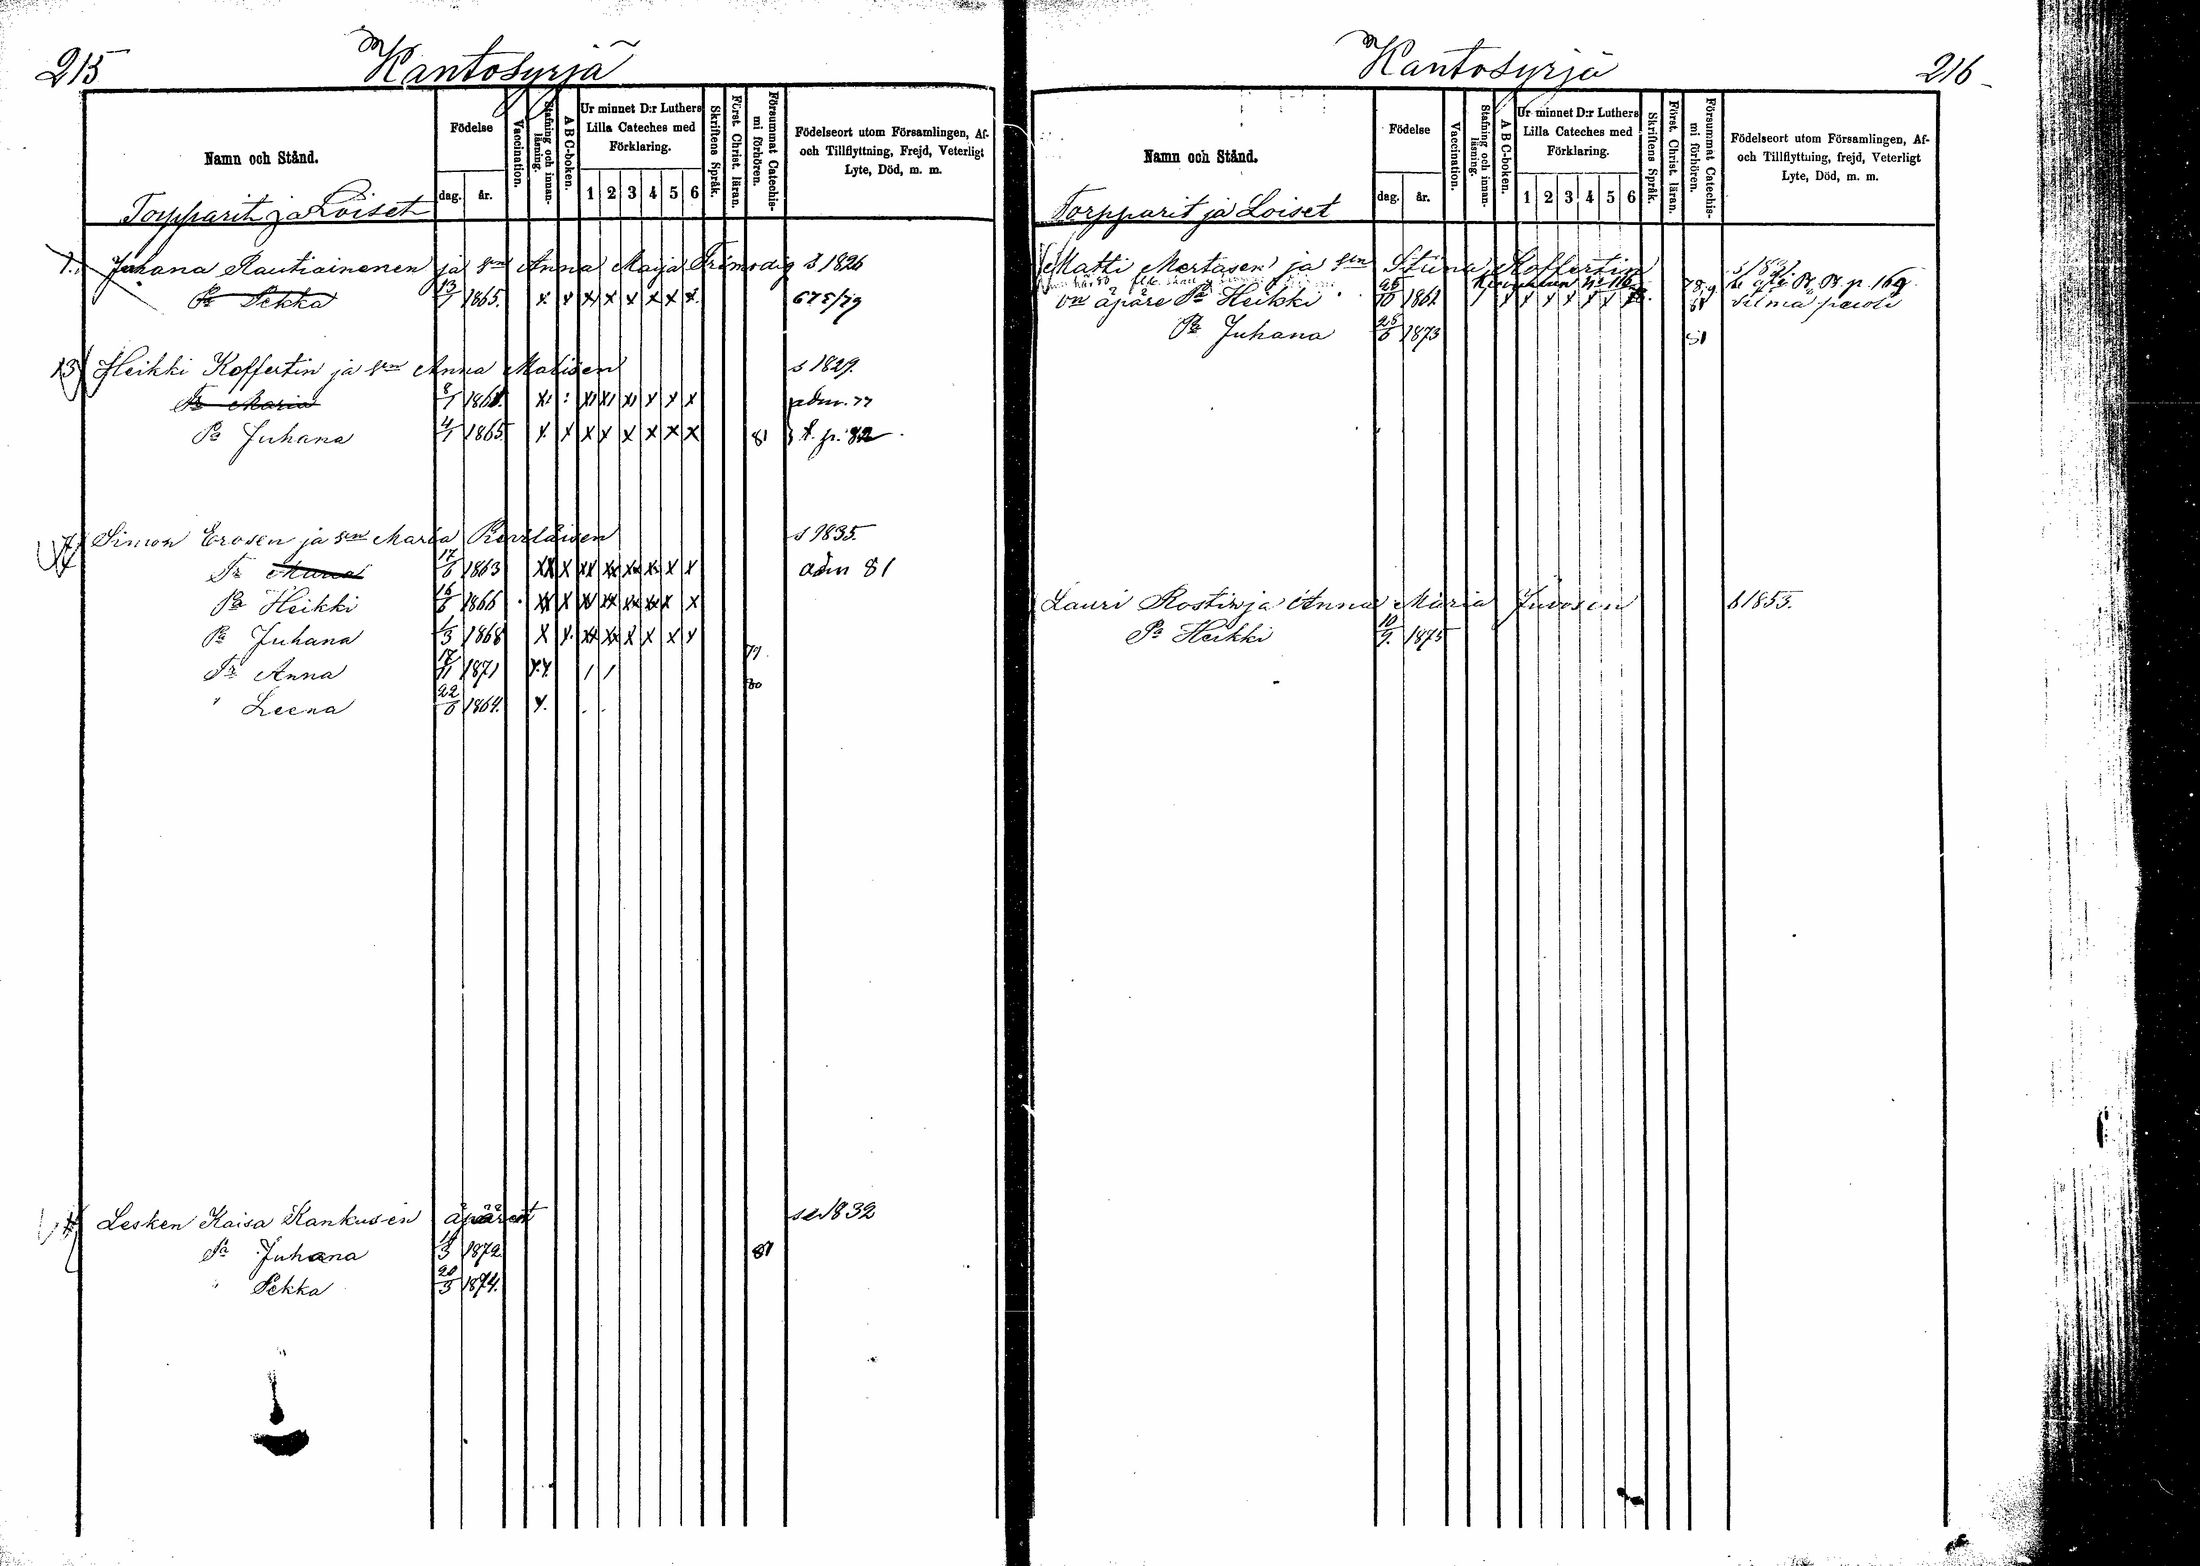 215
Kantosyrjä
Namn och Stånd.
Födelse
dag.
år.
Vaccination.
Stafning och innan-läsning.
A B C-boken.
Ur minnet D:r Luthers Lilla Cateches med Förklaring.
1 2 3 4 5 6
Skriftens Språk.
Först. Christ. läran.
Försummat Catechis-mi förhören.
Födelseort utom Församlingen, Af- och Tillflyttning, Frejd, Veterligt Lyte, Död, m. m.
Torpparit ja Loiset
Juhana Rautiainenen ja sen Anna Maija Frimodig s 1826
Pa Pekka 13/7 1865. x x x x x x x x 675/79
13 Heikki Koffertin ja sen Anna Matisen s 1829.
Tr Maria 8/1 1861. x
Pa Juhana 4/1 1865 x x x x x x x x 81 p. 82
Simon Erosen ja sen Maria s 1835.
Tr Maria 17/6 1863 adm 81
Pa Heikki 16/6 1866
Pa Juhana 1/3 1868 79
Tr Anna 17/11 1871 80
" Leena 22/6 1864.
Lesken Kaisa Kankusen äpäreet se 1832
Pa Juhana 1872. 81
" Pekka 20/3 1874.
Kantosyrjä
216
Namn och Stånd.
Födelse
dag.
år.
Vaccination.
Stafning och innan-läsning.
A B C-boken.
Ur minnet D:r Luthers Lilla Cateches med Förklaring.
1 2 3 4 5 6
Skriftens Språk.
Först. Christ. läran.
Försummat Catechis-mi förhören.
Födelseort utom Församlingen, Af- och Tillflyttning, frejd, Veterligt Lyte, Död, m. m.
Torpparit ja Loiset
Matti Mertasen ja sen Stiina Koffertin
vn äpäre Pa Heikki 26/10 1862 p. 169
Pa Juhana 1873 81
Lauri Rostin ja Anna Maria Juvosen s 1853.
Pa Heikki 10/9. 1875